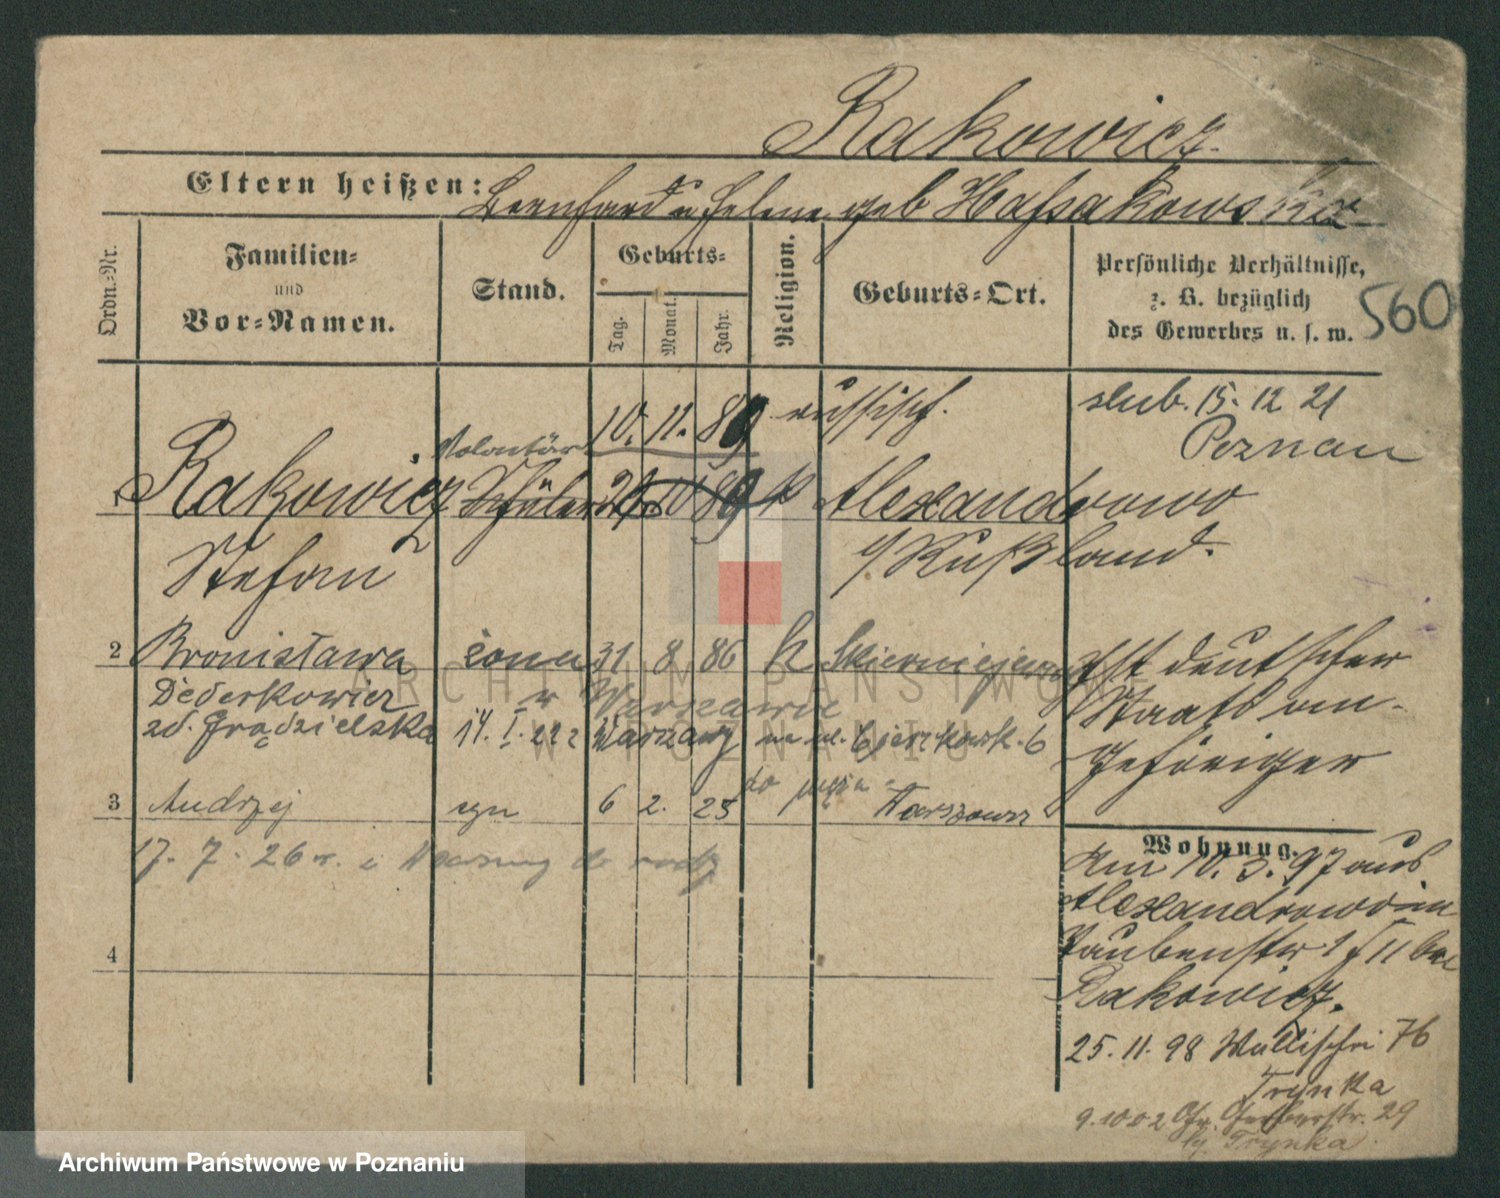 Rakowicz.
Eltern heißen: Bernhard u Helene geb
Ordn.-Nr.
Familien-
und
Vor-Namen.
Stand.
Geburts-
Tag.
Monat.
Jahr.
Religion.
Geburts-Ort.
Persönliche Verhältnisse,
z. B. bezüglich
des Gewerbes u. s. w.
560
10. 11. 89 russisch.
ślub. 15. 12 21
Poznań
Volontär
1 Rakowicz Schüler 10 89 k Alexandrowo
Stefan
i/Rußland.
2 Bronisława żona 31 8 86 k
Dederkowicz w Warszawie
zd. Grądzielska 14. I. 222 Warszawy na ul. 6
Ist deutscher
Staats an-
gehöriger
3 Andrzej syn 6 2. 25 Warszawa
do męża
17. 7. 26 r. z do
4
Wohnung.
Am 10. 3. 97 aus
Alexandrowo in
Taubenstr 1 II bei
Rakowicz.
25. 11. 98 Wallischei 76
Trynka
9. 10 02 Gr. Gerberstr. 29
Trynka
ARCHIWUM PAŃSTWOWE
W POZNANIU
Archiwum Państwowe w Poznaniu